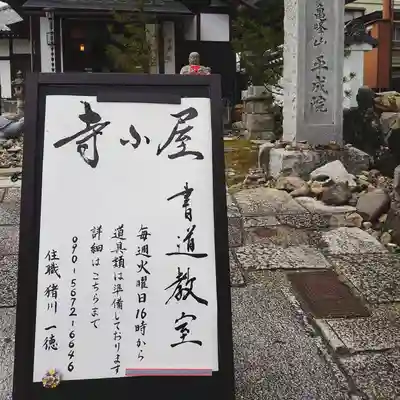 寺小屋
書道教室
毎週火曜日16時から
道具類は準備しております
詳細はこちらまで
090-5672-6646
住職 猪川 一徳
亀峰山 平成院